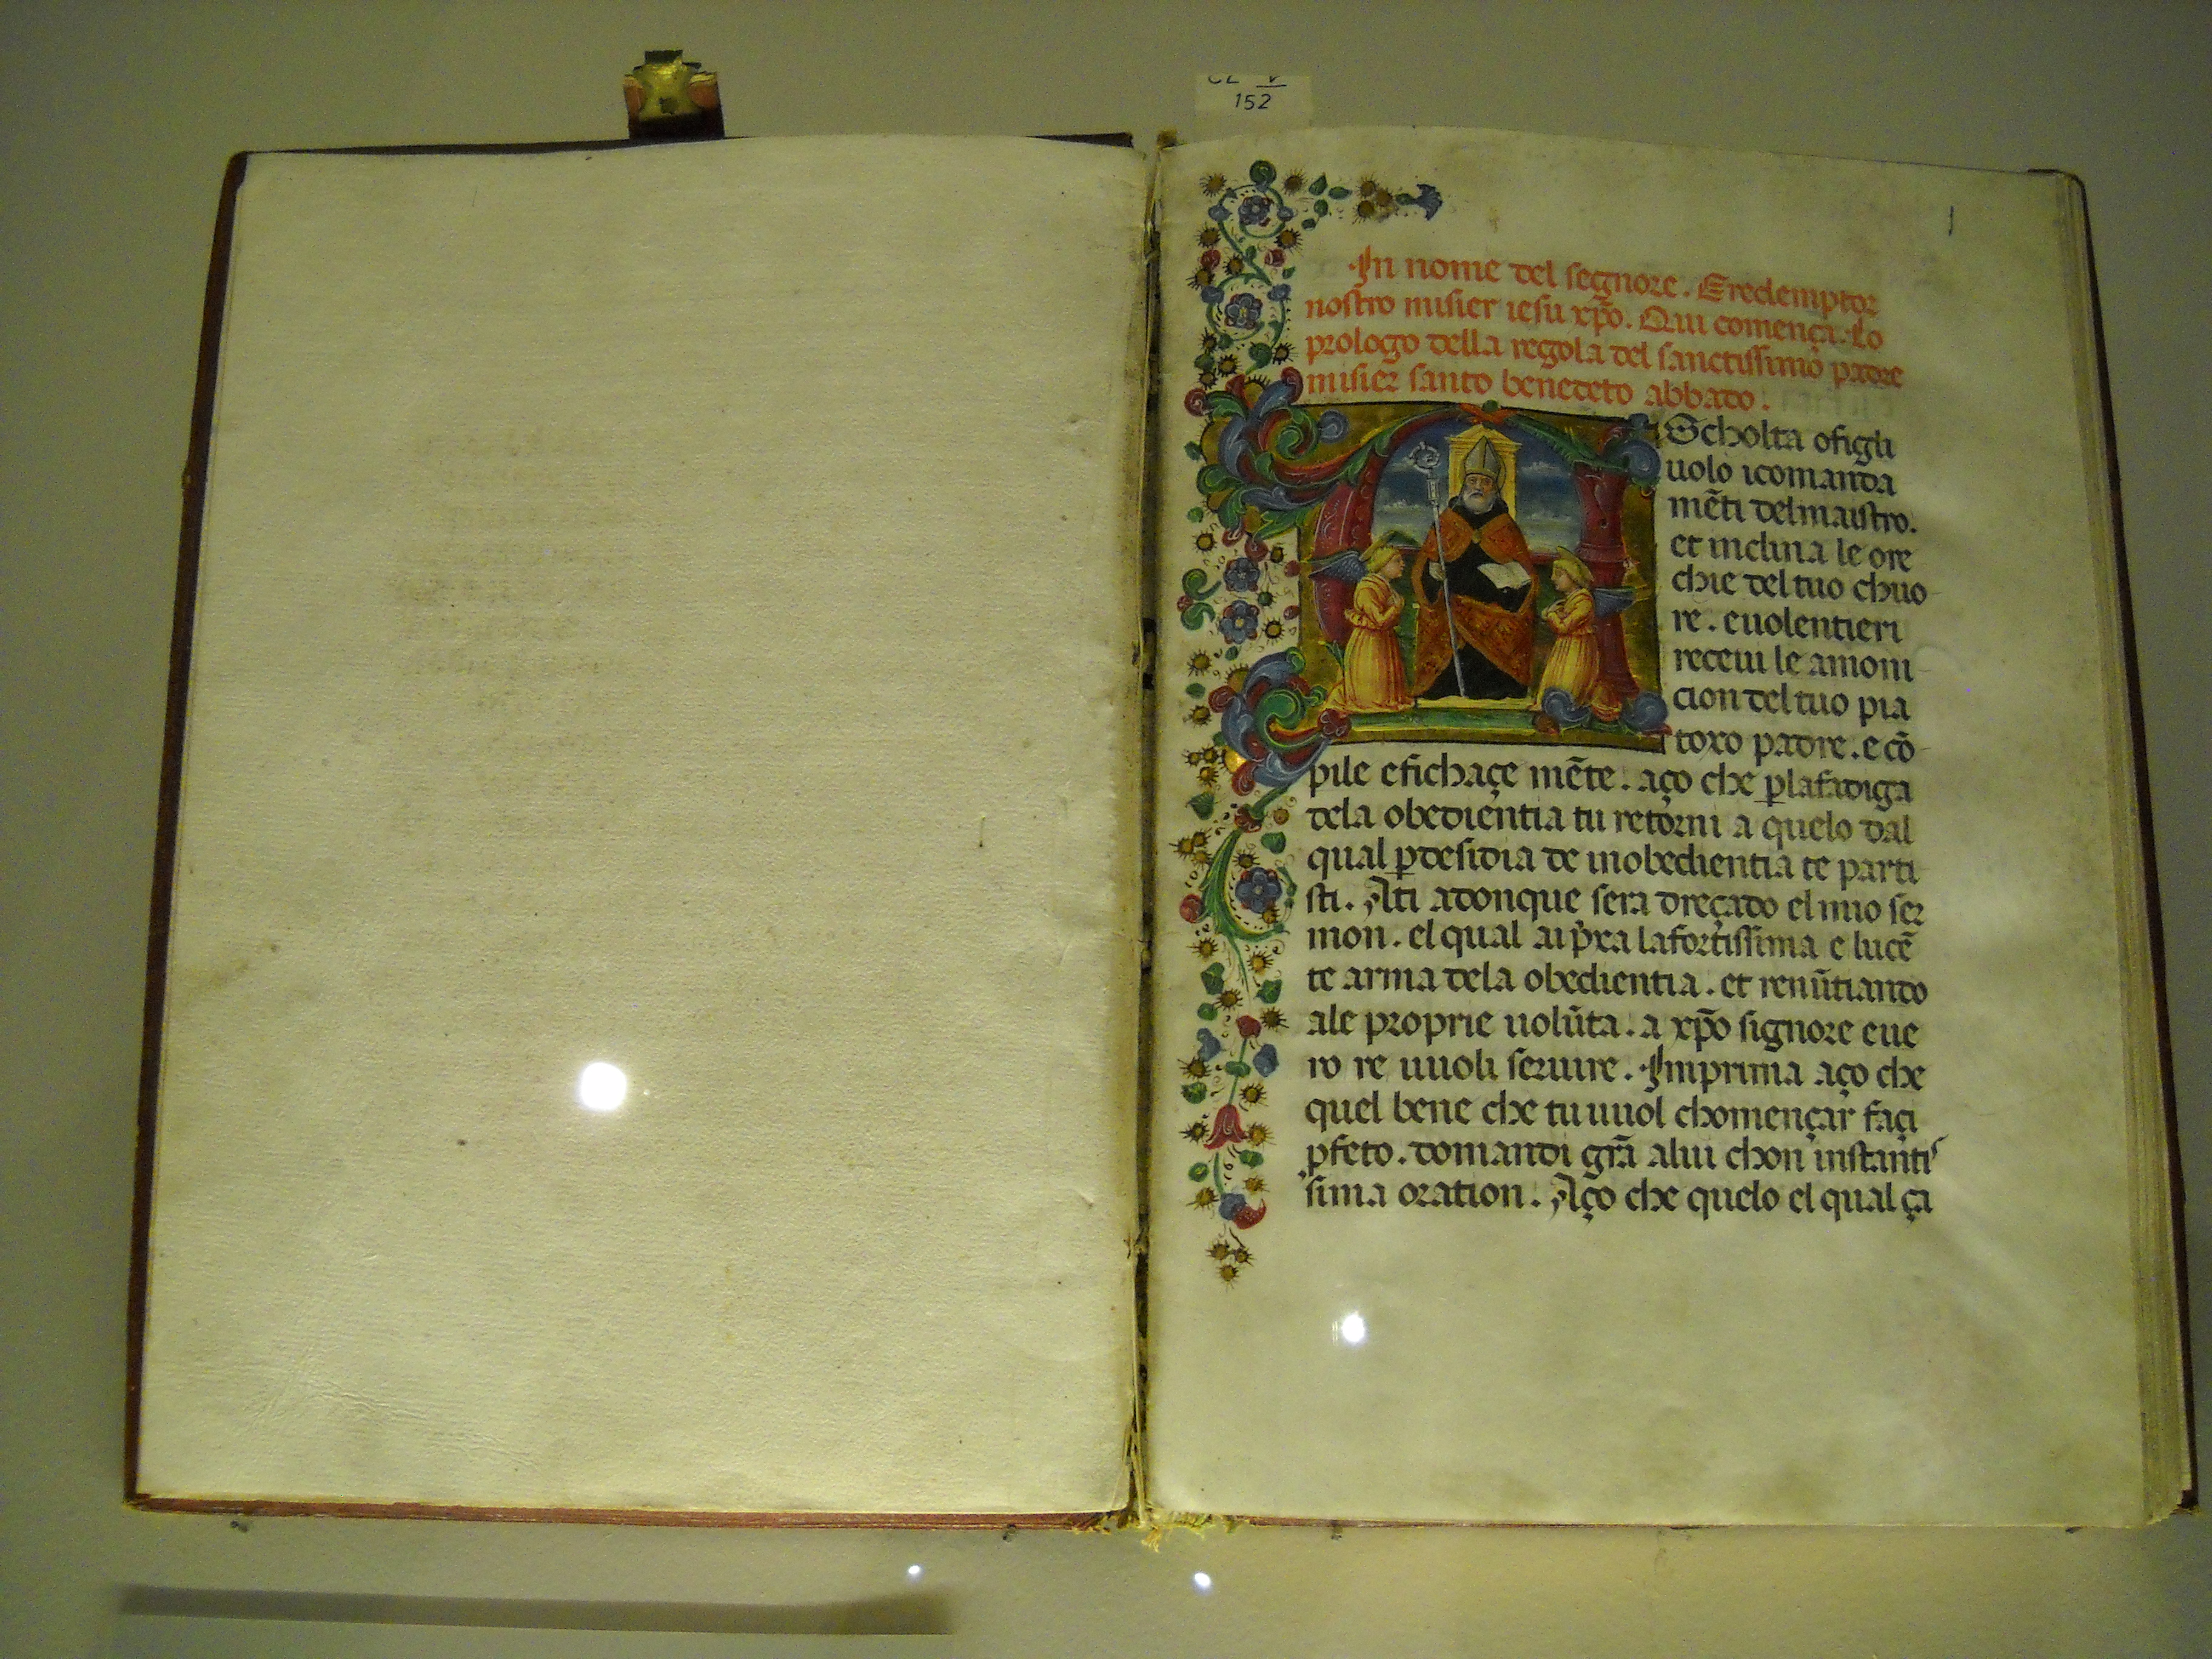 CL V
152
1
In nome del segnore. Eredemptor
nostro misier iesu xp̄o. Qui comença. Lo
prologo della regola del sanctissimo padre
misier santo benedeto abbato.
AScholta ofigli
uolo icomanda
mēti delmaistro.
et inclina le ore
chie del tuo chuo
re. euolentieri
receui le amoni
cion del tuo pia
toxo padre. e cō
pile efichaçe mēte. aço che ꝑlafadiga
dela obedientia tu retorni a quelo dal
qual ꝑdesidia de inobedientia te parti
sti. Ati adonque sera dreçado el mio ser
mon. el qual ai p̄xa lafortissima e lucē
te arma dela obedientia. et renūtiando
ale proprie uolūta. a xp̄o signore eue
ro re uuoli seruire. Imprima aço che
quel bene che tu uuol chomençar façi
ꝑfeto. domandi grā alui chon instantis
sima oration. Aço che quelo el qual ça